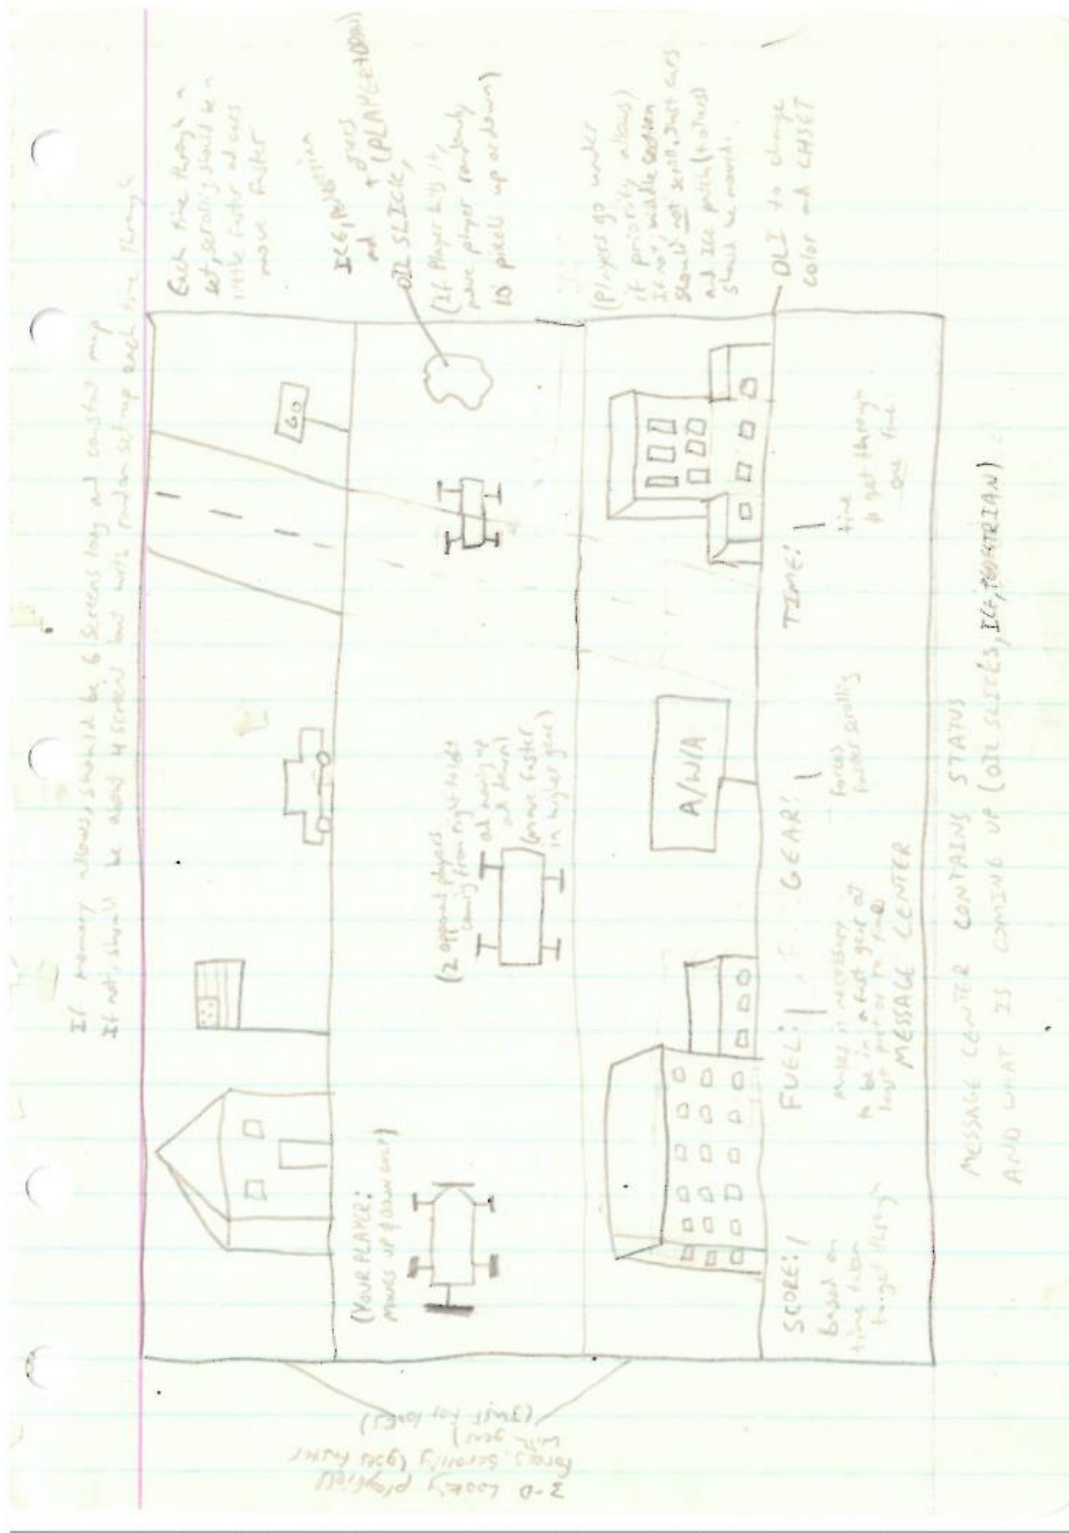 If memory allows, should be 6 screens long and constant map
If not, should be about 4 screens long with random set-up each time through
Each time through a
set, scrolling should be a
little faster and cars
move faster
ICE, PEDESTRIAN
and
(PLAYER
OIL SLICK,
(If Player hits it,
move player randomly
10 pixels up or down)
(Players go under
if priority allows)
If not, middle section
should not scroll. Just cars
and ICE patch (+ others)
should be moved.
DLI to change
color and CHSET
60
(YOUR PLAYER:
MOVES UP & DOWN ONLY)
(2 opponent players
coming from right to left
and moving up
and down)
(move faster
in higher gear)
A/W/A
SCORE:
based on
time taken
to get through
FUEL:
makes it necessary
to be in a fast gear at
least part of the time
GEAR:
forces
faster scrolling
TIME:
time
to get through
one time
MESSAGE CENTER
MESSAGE CENTER CONTAINS STATUS
AND WHAT IS COMING UP (OIL SLICKS, ICE, PEDESTRIAN)
3-D looking playfield
forces scrolling (goes faster
with gear)
(Just for looks)